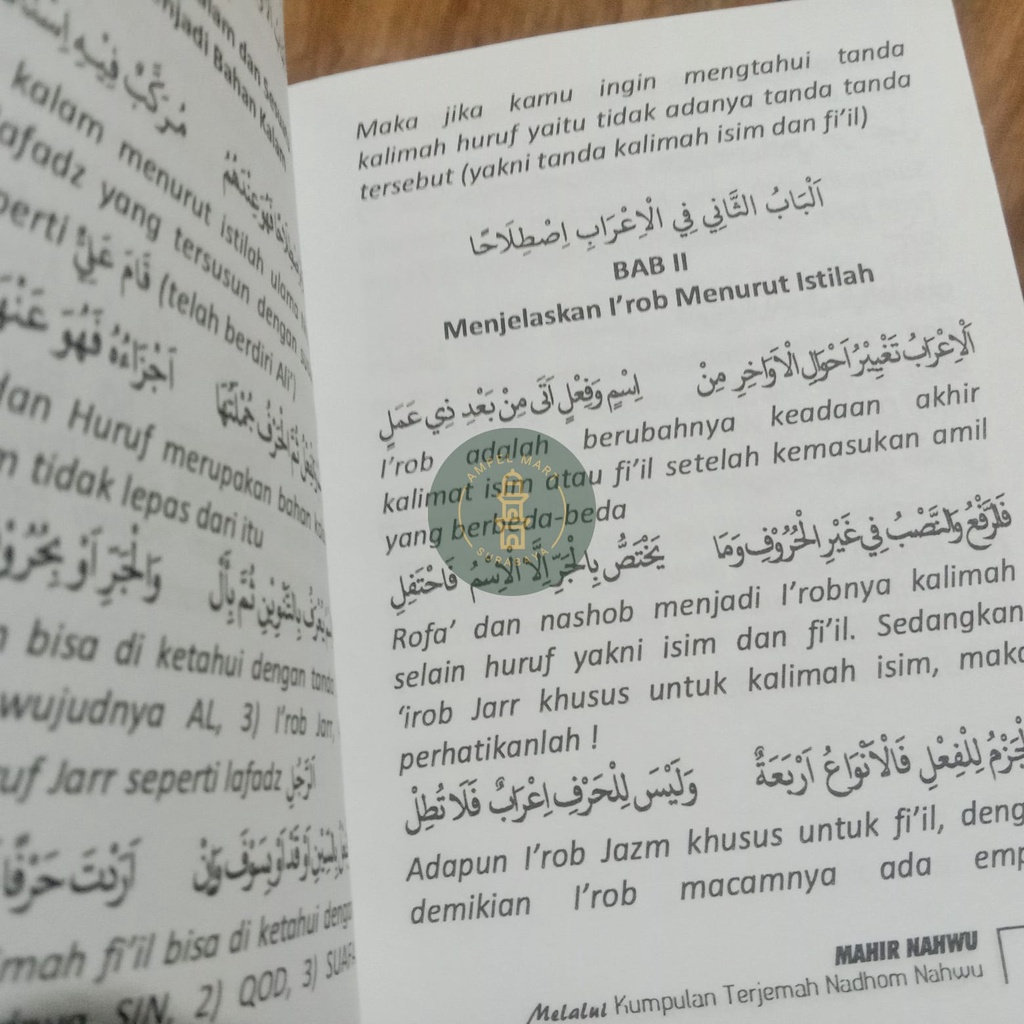 مُرَكَّبٌ فِيْهِ
kalam menurut istilah ulama
lafadz yang tersusun dengan
قَامَ عَلِيٌّ (telah berdiri Ali')
اَجْزَاءُهُ فَهُوَ عَنْهَا
dan Huruf merupakan bahan
tidak lepas dari itu
بِالتَّنْوِيْنِ ثُمَّ بِأَلْ وَالْجَرِّ اَوْ
bisa di ketahui dengan tanda
wujudnya AL, 3) I'rob Jarr,
huruf Jarr seperti lafadz
اَرَدْتَ حَرْفًا
fi'il bisa di ketahui denga
SIN, 2) QOD, 3)
Maka jika kamu ingin mengtahui tanda
kalimah huruf yaitu tidak adanya tanda tanda
tersebut (yakni tanda kalimah isim dan fi'il)
اَلْبَابُ الثَّانِي فِي الْاِعْرَابِ اِصْطِلَاحًا
BAB II
Menjelaskan I'rob Menurut Istilah
اَلْاِعْرَابُ تَغْيِيْرُ اَحْوَالِ الْاَوَاخِرِ مِنْ اِسْمٍ وَفِعْلٍ اَتَى مِنْ بَعْدِ ذِي عَمَلٍ
I'rob adalah berubahnya keadaan akhir
kalimat isim atau fi'il setelah kemasukan amil
yang berbeda-beda
فَالرَّفْعُ وَالنَّصْبُ فِي غَيْرِ الْحُرُوْفِ وَمَا يَخْتَصُّ بِالْجَرِّ اِلَّا الْاِسْمُ فَاحْتَفِلِ
Rofa' dan nashob menjadi I'robnya kalimah
selain huruf yakni isim dan fi'il. Sedangkan
'irob Jarr khusus untuk kalimah isim, maka
perhatikanlah !
الْجَزْمُ لِلْفِعْلِ فَالْاَنْوَاعُ اَرْبَعَةٌ وَلَيْسَ لِلْحَرْفِ اِعْرَابٌ فَلَا تُطِلْ
Adapun I'rob Jazm khusus untuk fi'il, deng
demikian I'rob macamnya ada emp
MAHIR NAHWU
Melalui Kumpulan Terjemah Nadhom Nahwu
AMPEL MART
SURABAYA